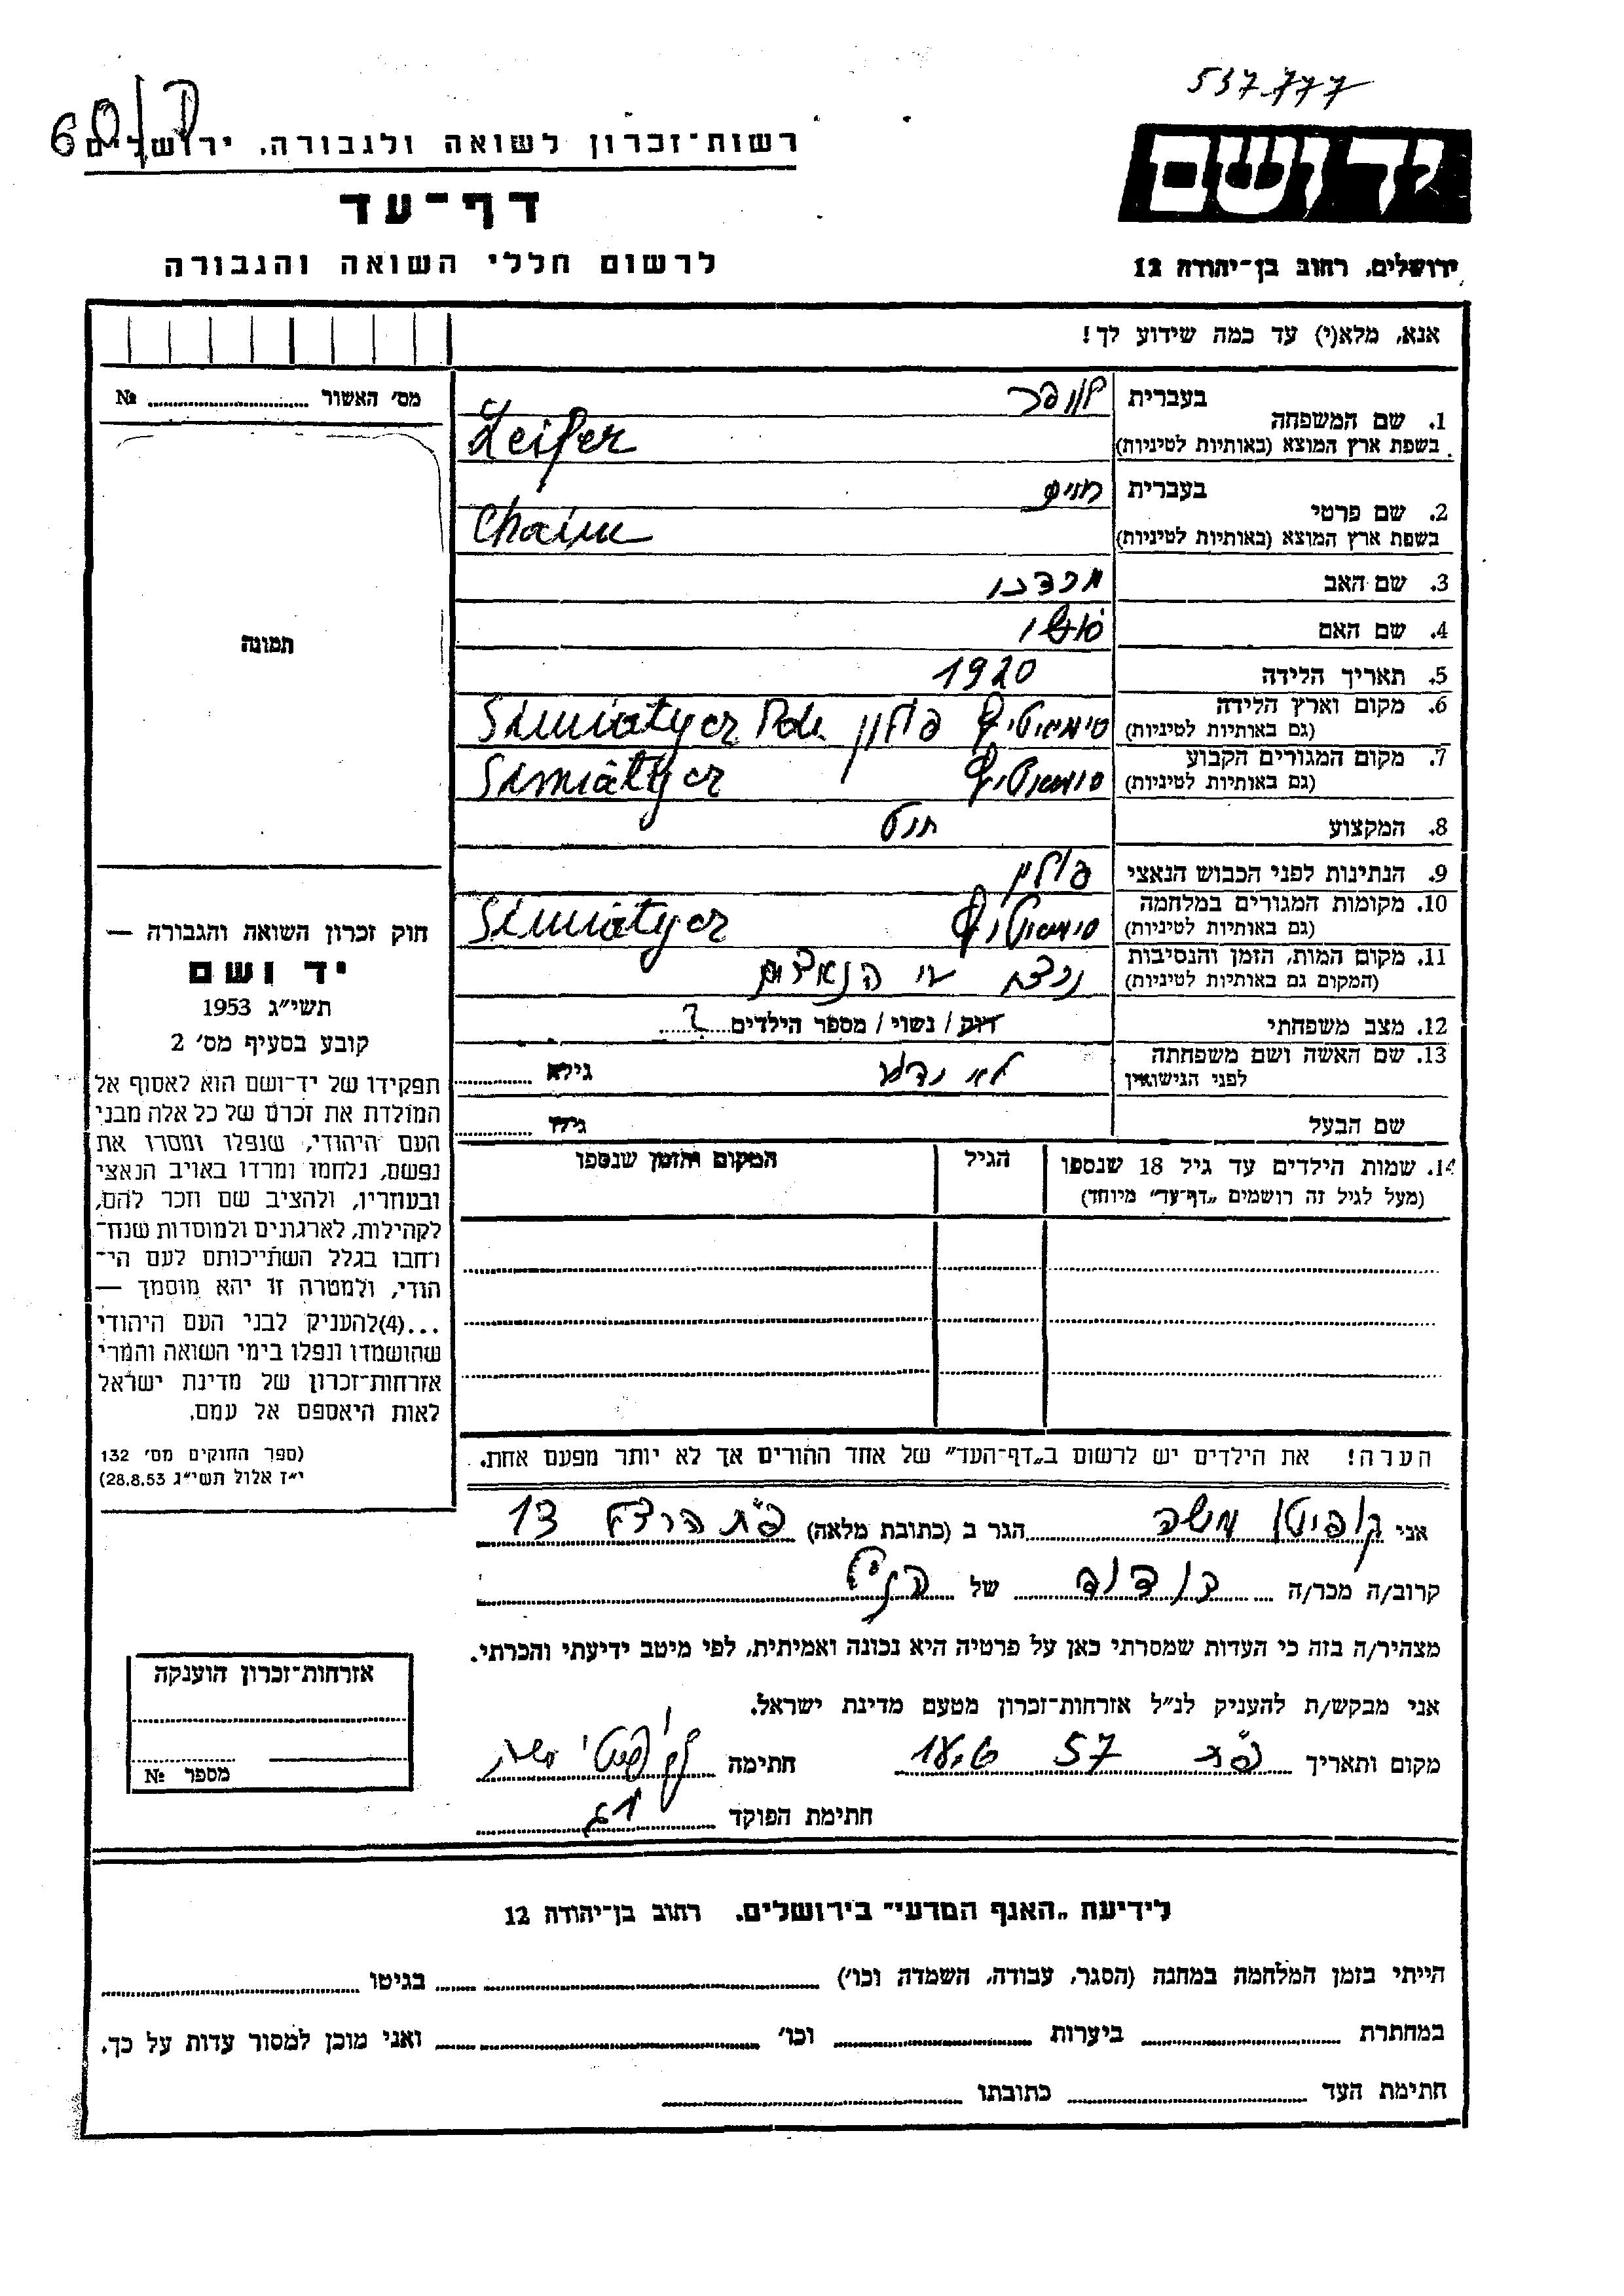 537.777
רשות-זכרון לשואה ולגבורה, ירושלים
יד ושם
דף-עד
לרשום חללי השואה והגבורה
ירושלים, רחוב בן-יהודה 12
אנא, מלא(י) עד כמה שידוע לך!
מס' האשור № 
1. שם המשפחה
בעברית לייפר
בשפת ארץ המוצא (באותיות לטיניות) Leifer
2. שם פרטי
בעברית חיים
בשפת ארץ המוצא (באותיות לטיניות) Chaim
3. שם האב מרדכי
4. שם האם
5. תאריך הלידה 1920
6. מקום וארץ הלידה
(גם באותיות לטיניות) סימיאטיץ פולין
7. מקום המגורים הקבוע
(גם באותיות לטיניות) סימיאטיץ
8. המקצוע
9. הנתינות לפני הכבוש הנאצי פולין
10. מקומות המגורים במלחמה
(גם באותיות לטיניות) סימיאטיץ
11. מקום המות, הזמן והנסיבות
(המקום גם באותיות לטיניות) נרצח ע"י הנאצים
12. מצב משפחתי רוק / נשוי / מספר הילדים ?
13. שם האשה ושם משפחתה
לפני הנישואין לא ידוע גילא
שם הבעל גילו
14. שמות הילדים עד גיל 18 שנספו
(מעל לגיל זה רושמים „דף-עד" מיוחד)
הגיל
המקום והזמן שנספו
הערה! את הילדים יש לרשום ב„דף-העד" של אחד ההורים אך לא יותר מפעם אחת.
תמונה
חוק זכרון השואה והגבורה —
יד ושם
תשי"ג 1953
קובע בסעיף מס' 2
תפקידו של יד-ושם הוא לאסוף אל
המולדת את זכרם של כל אלה מבני
העם היהודי, שנפלו ומסרו את
נפשם, נלחמו ומרדו באויב הנאצי
ובעוזריו, ולהציב שם וזכר להם,
לקהילות, לארגונים ולמוסדות שנח-
רחבו בגלל השתייכותם לעם הי-
הודי, ולמטרה זו יהא מוסמך —
...(4)להעניק לבני העם היהודי
שהושמדו ונפלו בימי השואה והמרי
אזרחות-זכרון של מדינת ישראל
לאות היאספם אל עמם.
(ספר החוקים מס' 132
י"ז אלול תשי"ג 28.8.53)
אני קופיטן משה הגר ב (כתובת מלאה) פ"ת הרצל 13
קרוב/ה מכר/ה בן דוד של הנ"ל
מצהיר/ה בזה כי העדות שמסרתי כאן על פרטיה היא נכונה ואמיתית, לפי מיטב ידיעתי והכרתי.
אני מבקש/ת להעניק לנ"ל אזרחות-זכרון מטעם מדינת ישראל.
מקום ותאריך פ"ת 57 חתימה
חתימת הפוקד
אזרחות-זכרון הוענקה
מספר №
לידיעת „האגף המדעי" בירושלים. רחוב בן-יהודה 12
הייתי בזמן המלחמה במחנה (הסגר, עבודה, השמדה וכו') בגיטו
במחתרת ביערות וכו' ואני מוכן למסור עדות על כך.
חתימת העד כתובתו